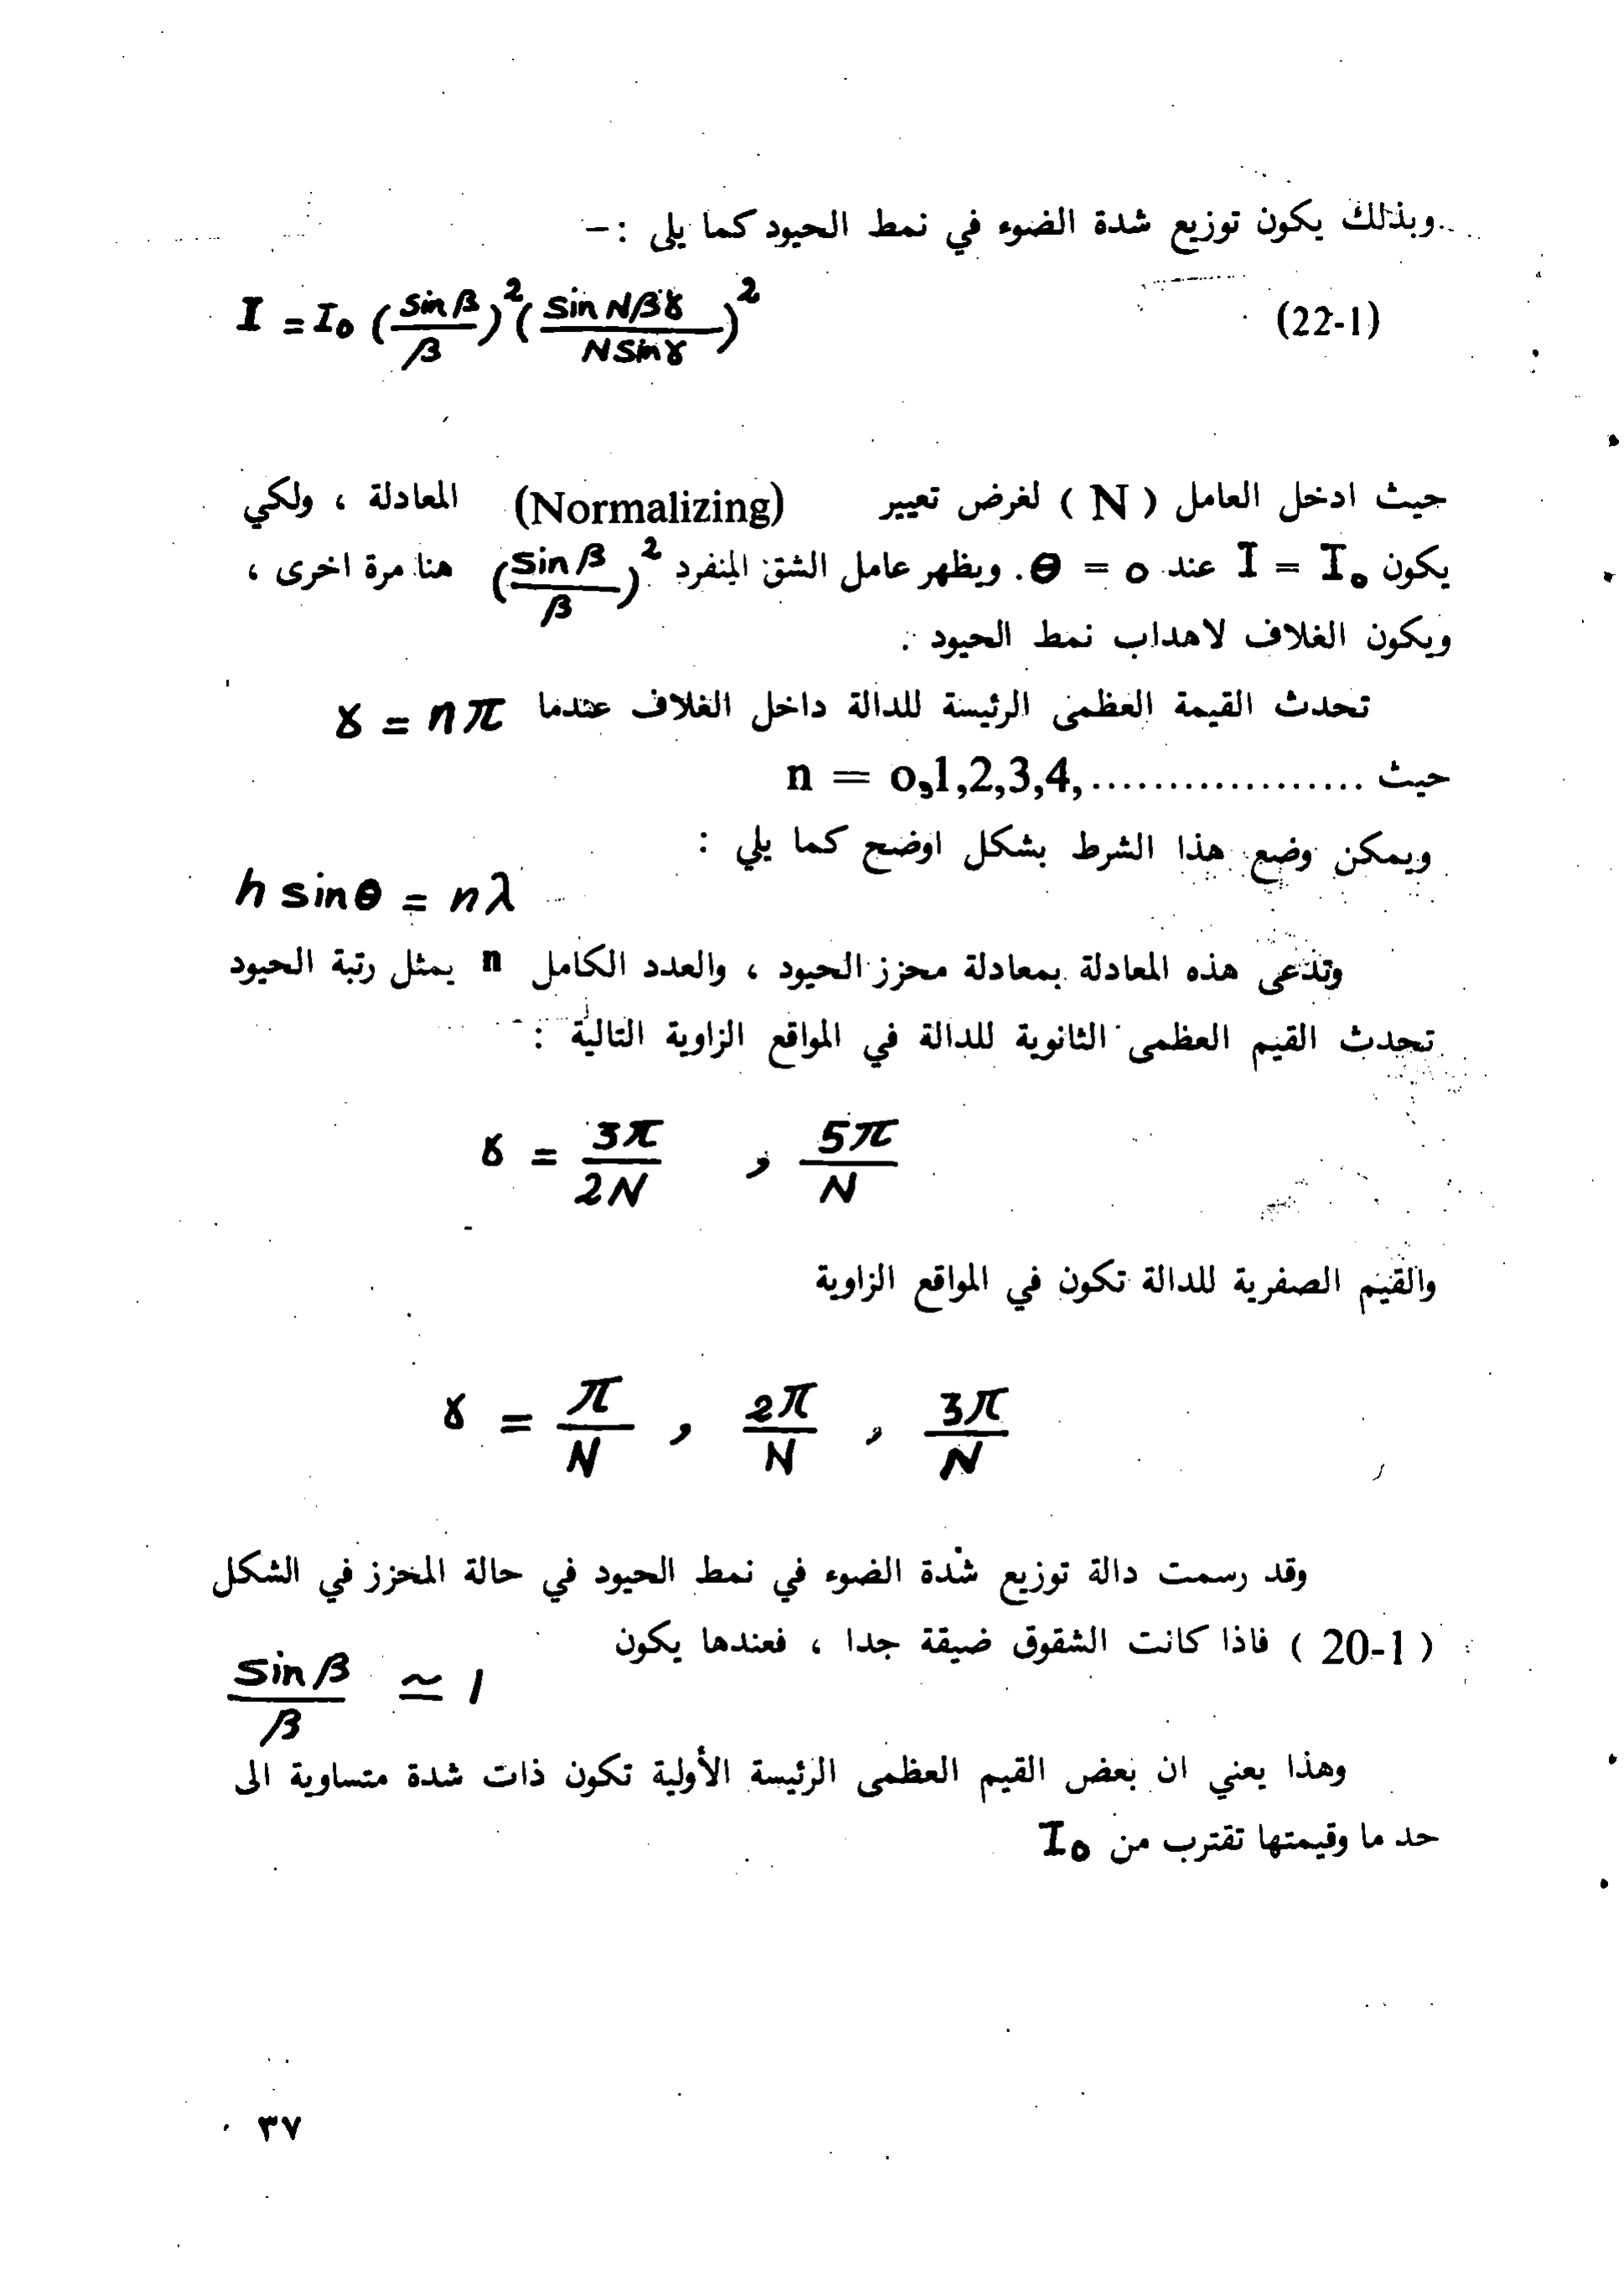 وبذلك يكون توزيع شدة الضوء في نمط الحيود كما يلي :–
I = I₀ (sin β / β)² (sin Nβγ / N sin γ)² (22-1)
حيث ادخل العامل ( N ) لغرض تعيير (Normalizing) المعادلة ، ولكي
يكون I = I₀ عند θ = 0 . ويظهر عامل الشق المنفرد (sin β / β)² هنا مرة اخرى ،
ويكون الغلاف لاهداب نمط الحيود .
تحدث القيمة العظمى الرئيسة للدالة داخل الغلاف عندما γ = nπ
حيث n = 0,1,2,3,4,..................
ويمكن وضع هذا الشرط بشكل اوضح كما يلي :
h sin θ = nλ
وتدعى هذه المعادلة بمعادلة محزز الحيود ، والعدد الكامل n يمثل رتبة الحيود
تحدث القيم العظمى الثانوية للدالة في المواقع الزاوية التالية :
γ = 3π / 2N , 5π / N
والقيم الصفرية للدالة تكون في المواقع الزاوية
γ = π / N , 2π / N , 3π / N
وقد رسمت دالة توزيع شدة الضوء في نمط الحيود في حالة المحزز في الشكل
( 20-1 ) فاذا كانت الشقوق ضيقة جدا ، فعندها يكون
sin β / β ≃ 1
وهذا يعني ان بعض القيم العظمى الرئيسة الأولية تكون ذات شدة متساوية الى
حد ما وقيمتها تقترب من I₀
٣٧